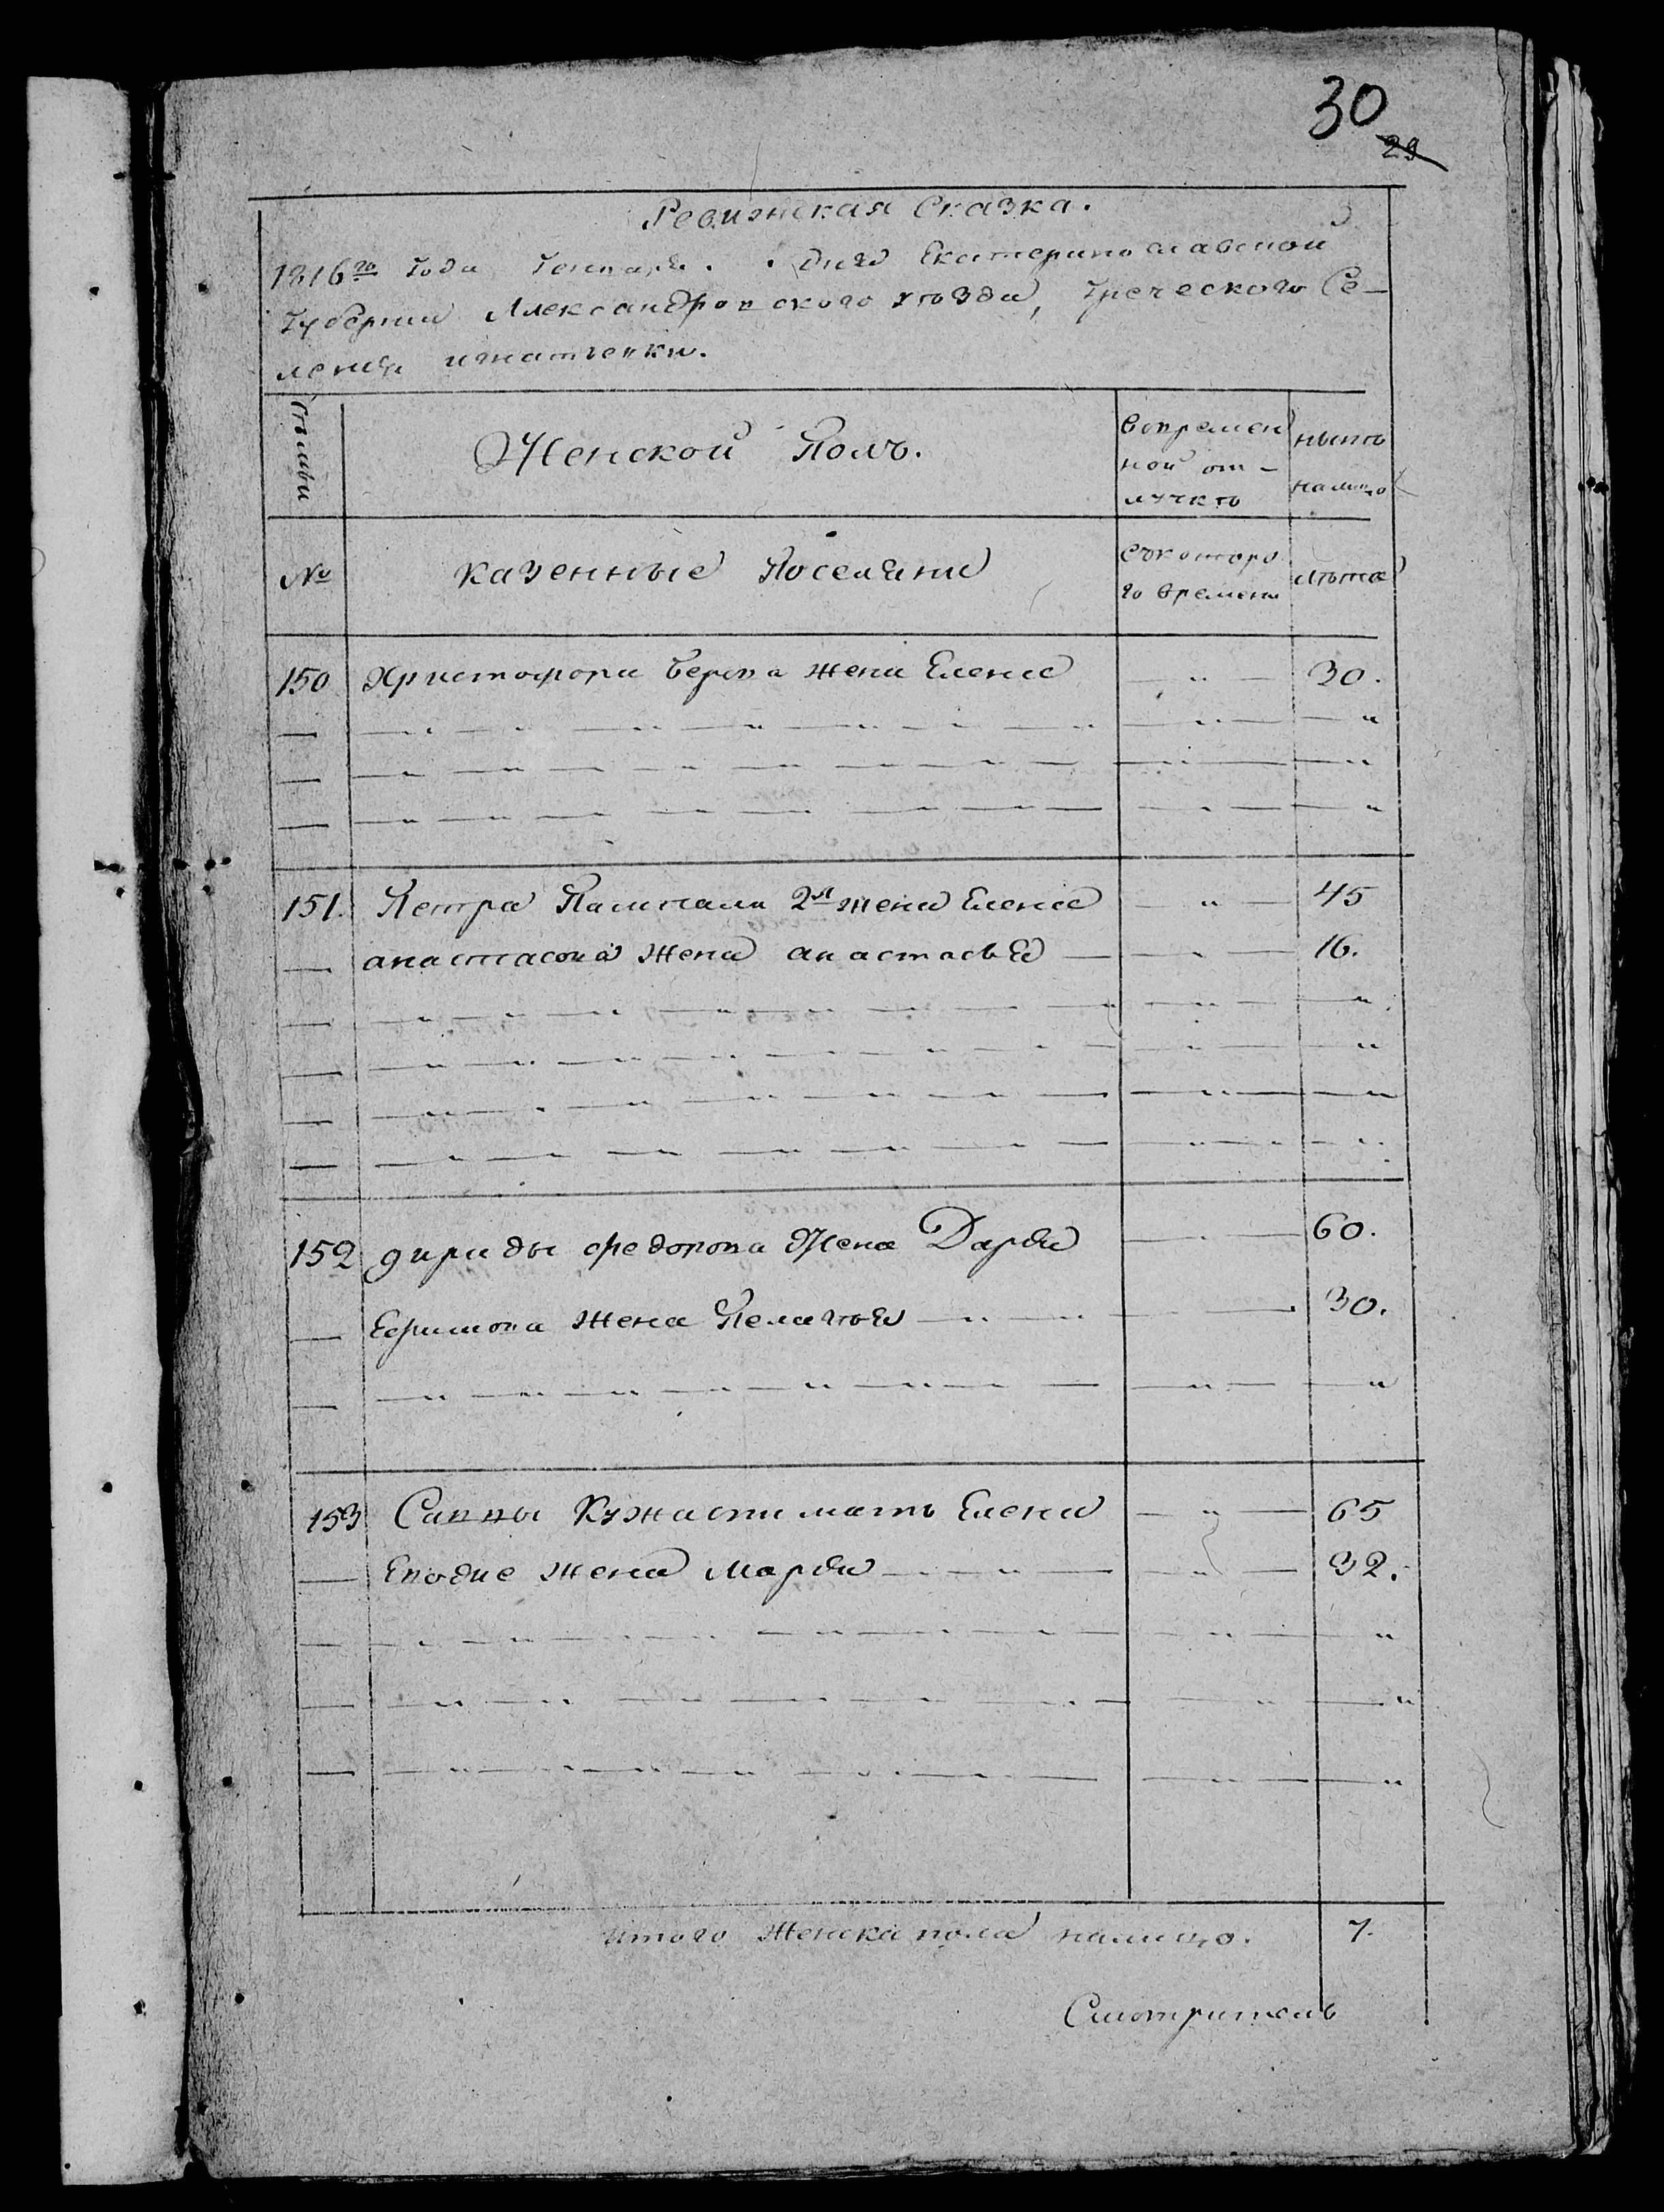 30
29
Ревижская Сказка.
1816го года Генваря . . дня Екатеринославской
Губернии Александровского уѣзда, Греческого Се-
ления игнатьевки.
Семьи
Женской Полъ.
вовремен
ной от-
лучкѣ
нынѣ
налицо
№
казенные Поселяни
съкоторо
го времени
лѣта
150 Христофора жена Елена — " — 30.
151. Петра 2я жена Елена — " — 45
— анастасова жена анастасья — 16.
152 федорова Жена Дарья — 60.
— Ефимова жена Пелагѣя — " — 30.
153 Саввы мать Елена — " — 65
— жена Марья — " — 32.
итого женска пола налицо. 7.
Смотритель